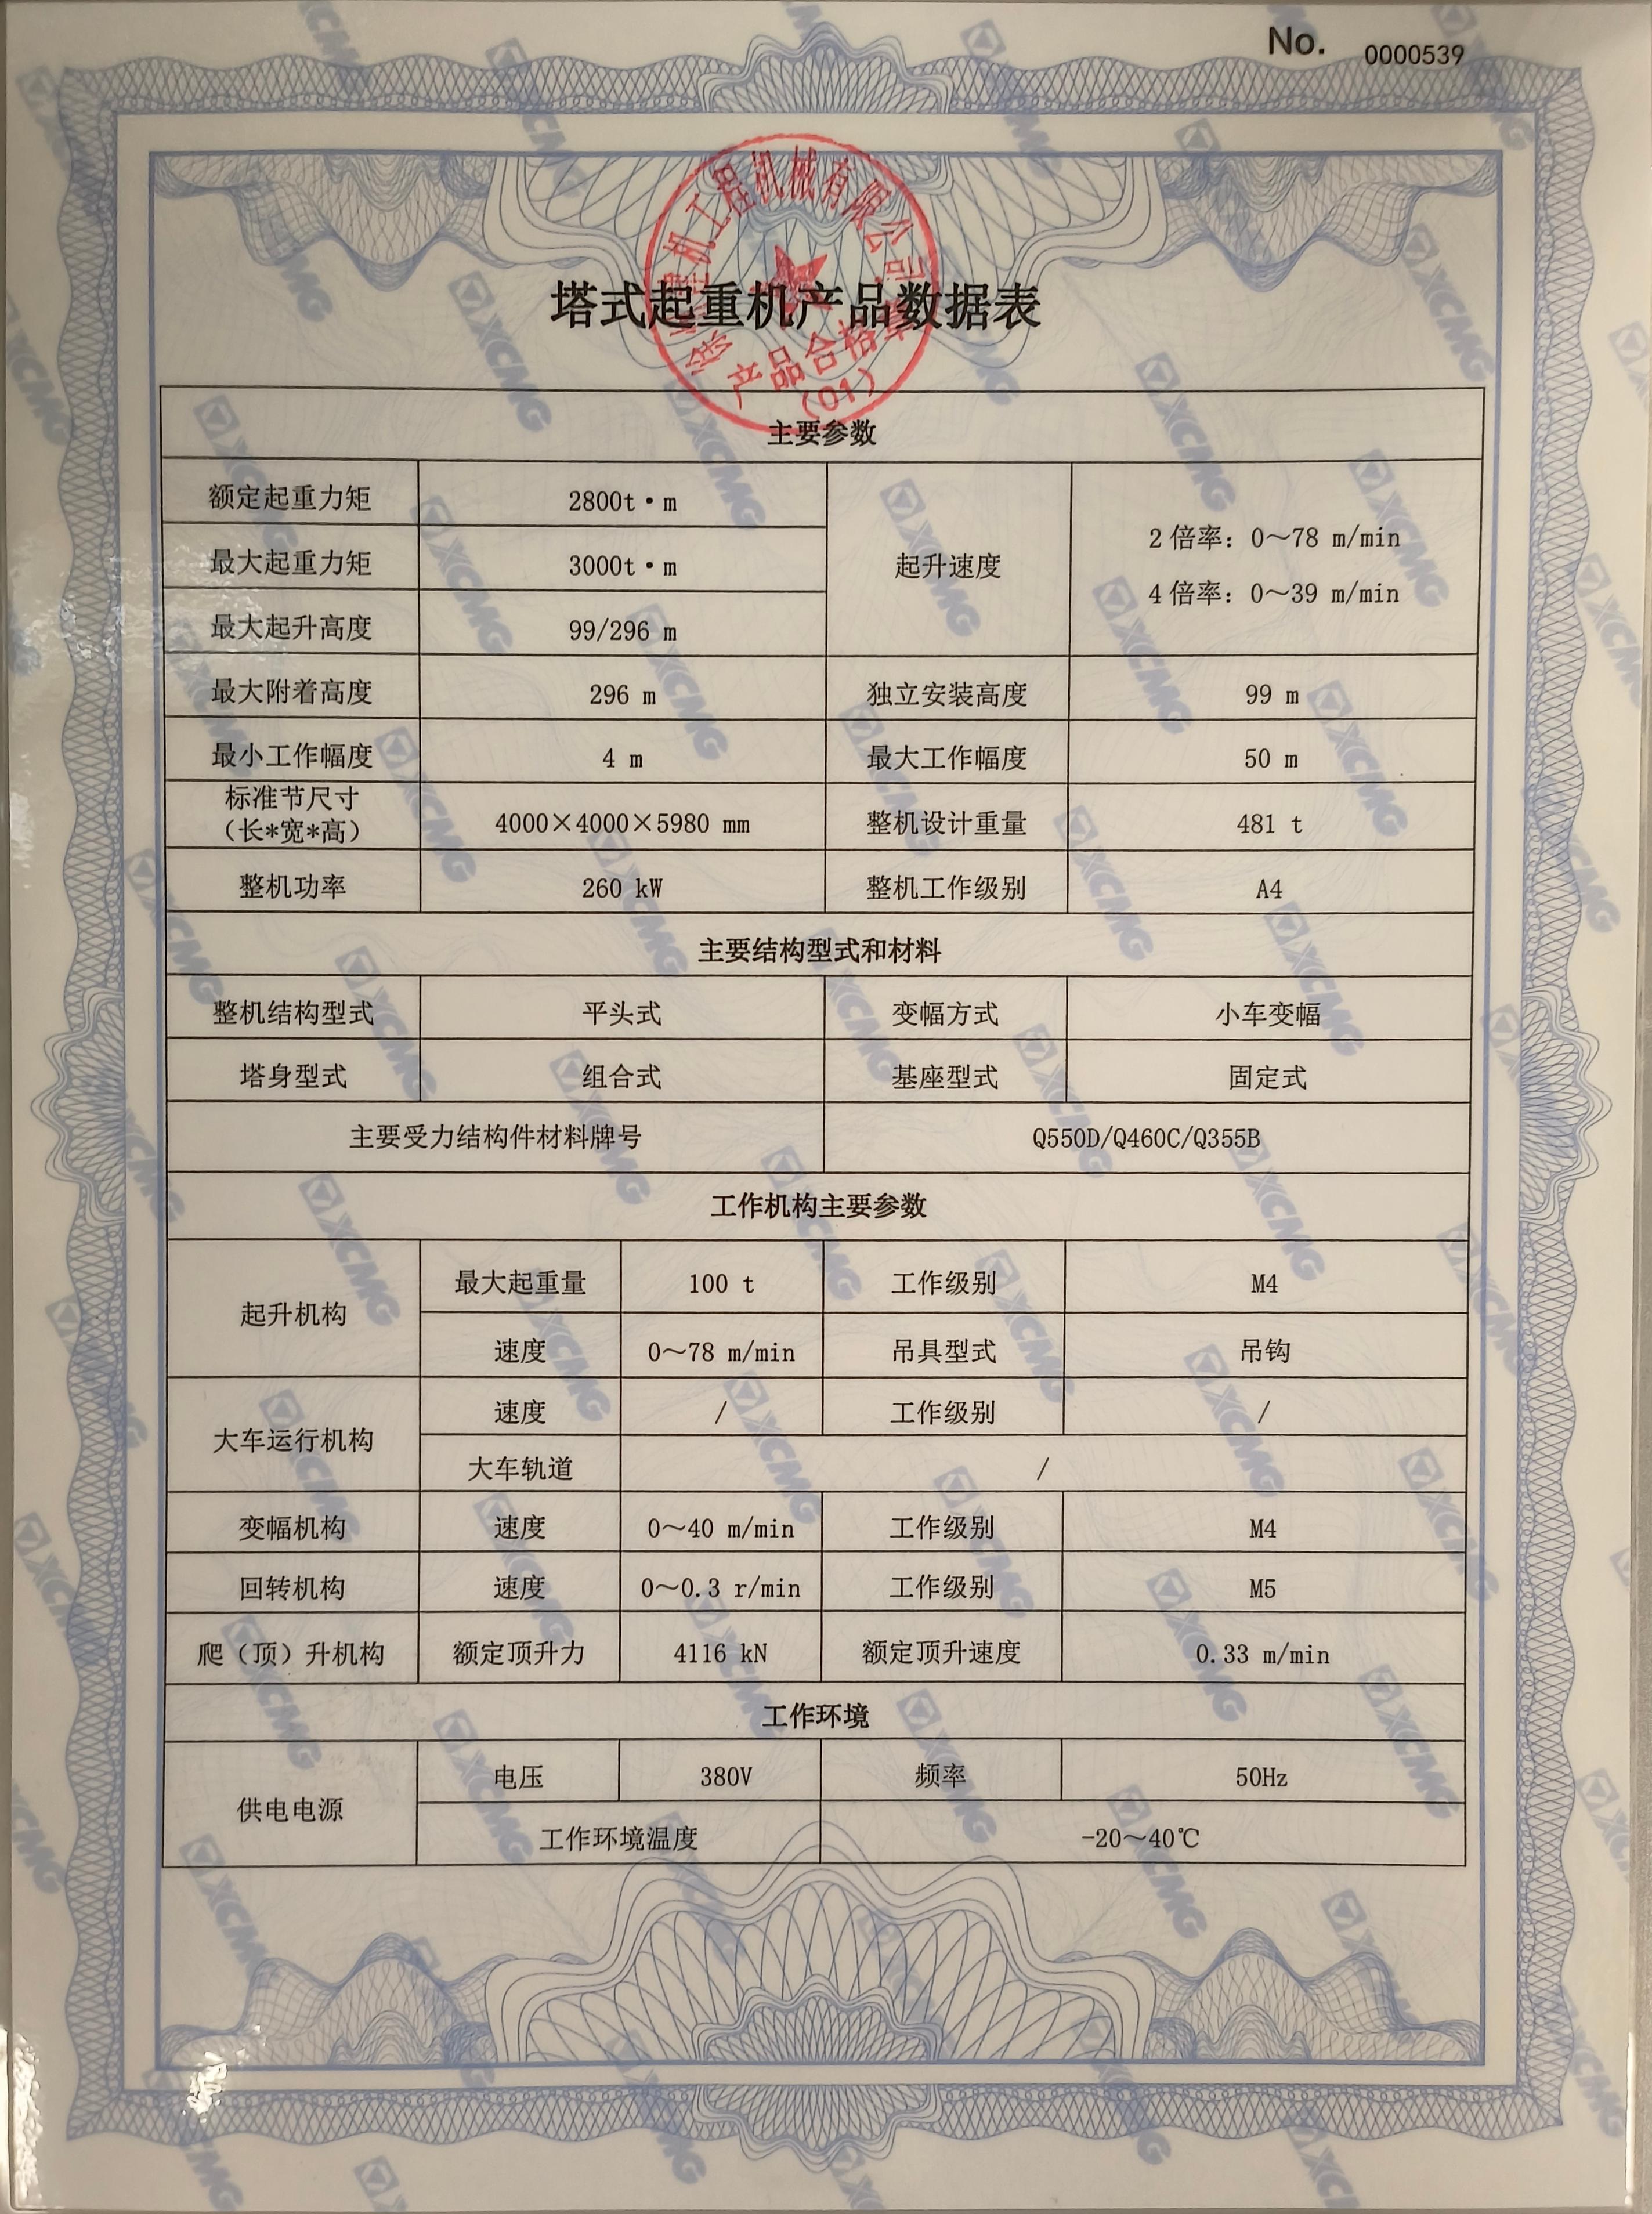 No. 0000539
工程机械有限公司
产品合格章
(01)
塔式起重机产品数据表
主要参数
额定起重力矩 2800t·m 起升速度 2倍率：0～78 m/min
4倍率：0～39 m/min
最大起重力矩 3000t·m
最大起升高度 99/296 m
最大附着高度 296 m 独立安装高度 99 m
最小工作幅度 4 m 最大工作幅度 50 m
标准节尺寸
（长*宽*高） 4000×4000×5980 mm 整机设计重量 481 t
整机功率 260 kW 整机工作级别 A4
主要结构型式和材料
整机结构型式 平头式 变幅方式 小车变幅
塔身型式 组合式 基座型式 固定式
主要受力结构件材料牌号 Q550D/Q460C/Q355B
工作机构主要参数
起升机构 最大起重量 100 t 工作级别 M4
速度 0～78 m/min 吊具型式 吊钩
大车运行机构 速度 / 工作级别 /
大车轨道 /
变幅机构 速度 0～40 m/min 工作级别 M4
回转机构 速度 0～0.3 r/min 工作级别 M5
爬（顶）升机构 额定顶升力 4116 kN 额定顶升速度 0.33 m/min
工作环境
供电电源 电压 380V 频率 50Hz
工作环境温度 -20～40℃
XCMG